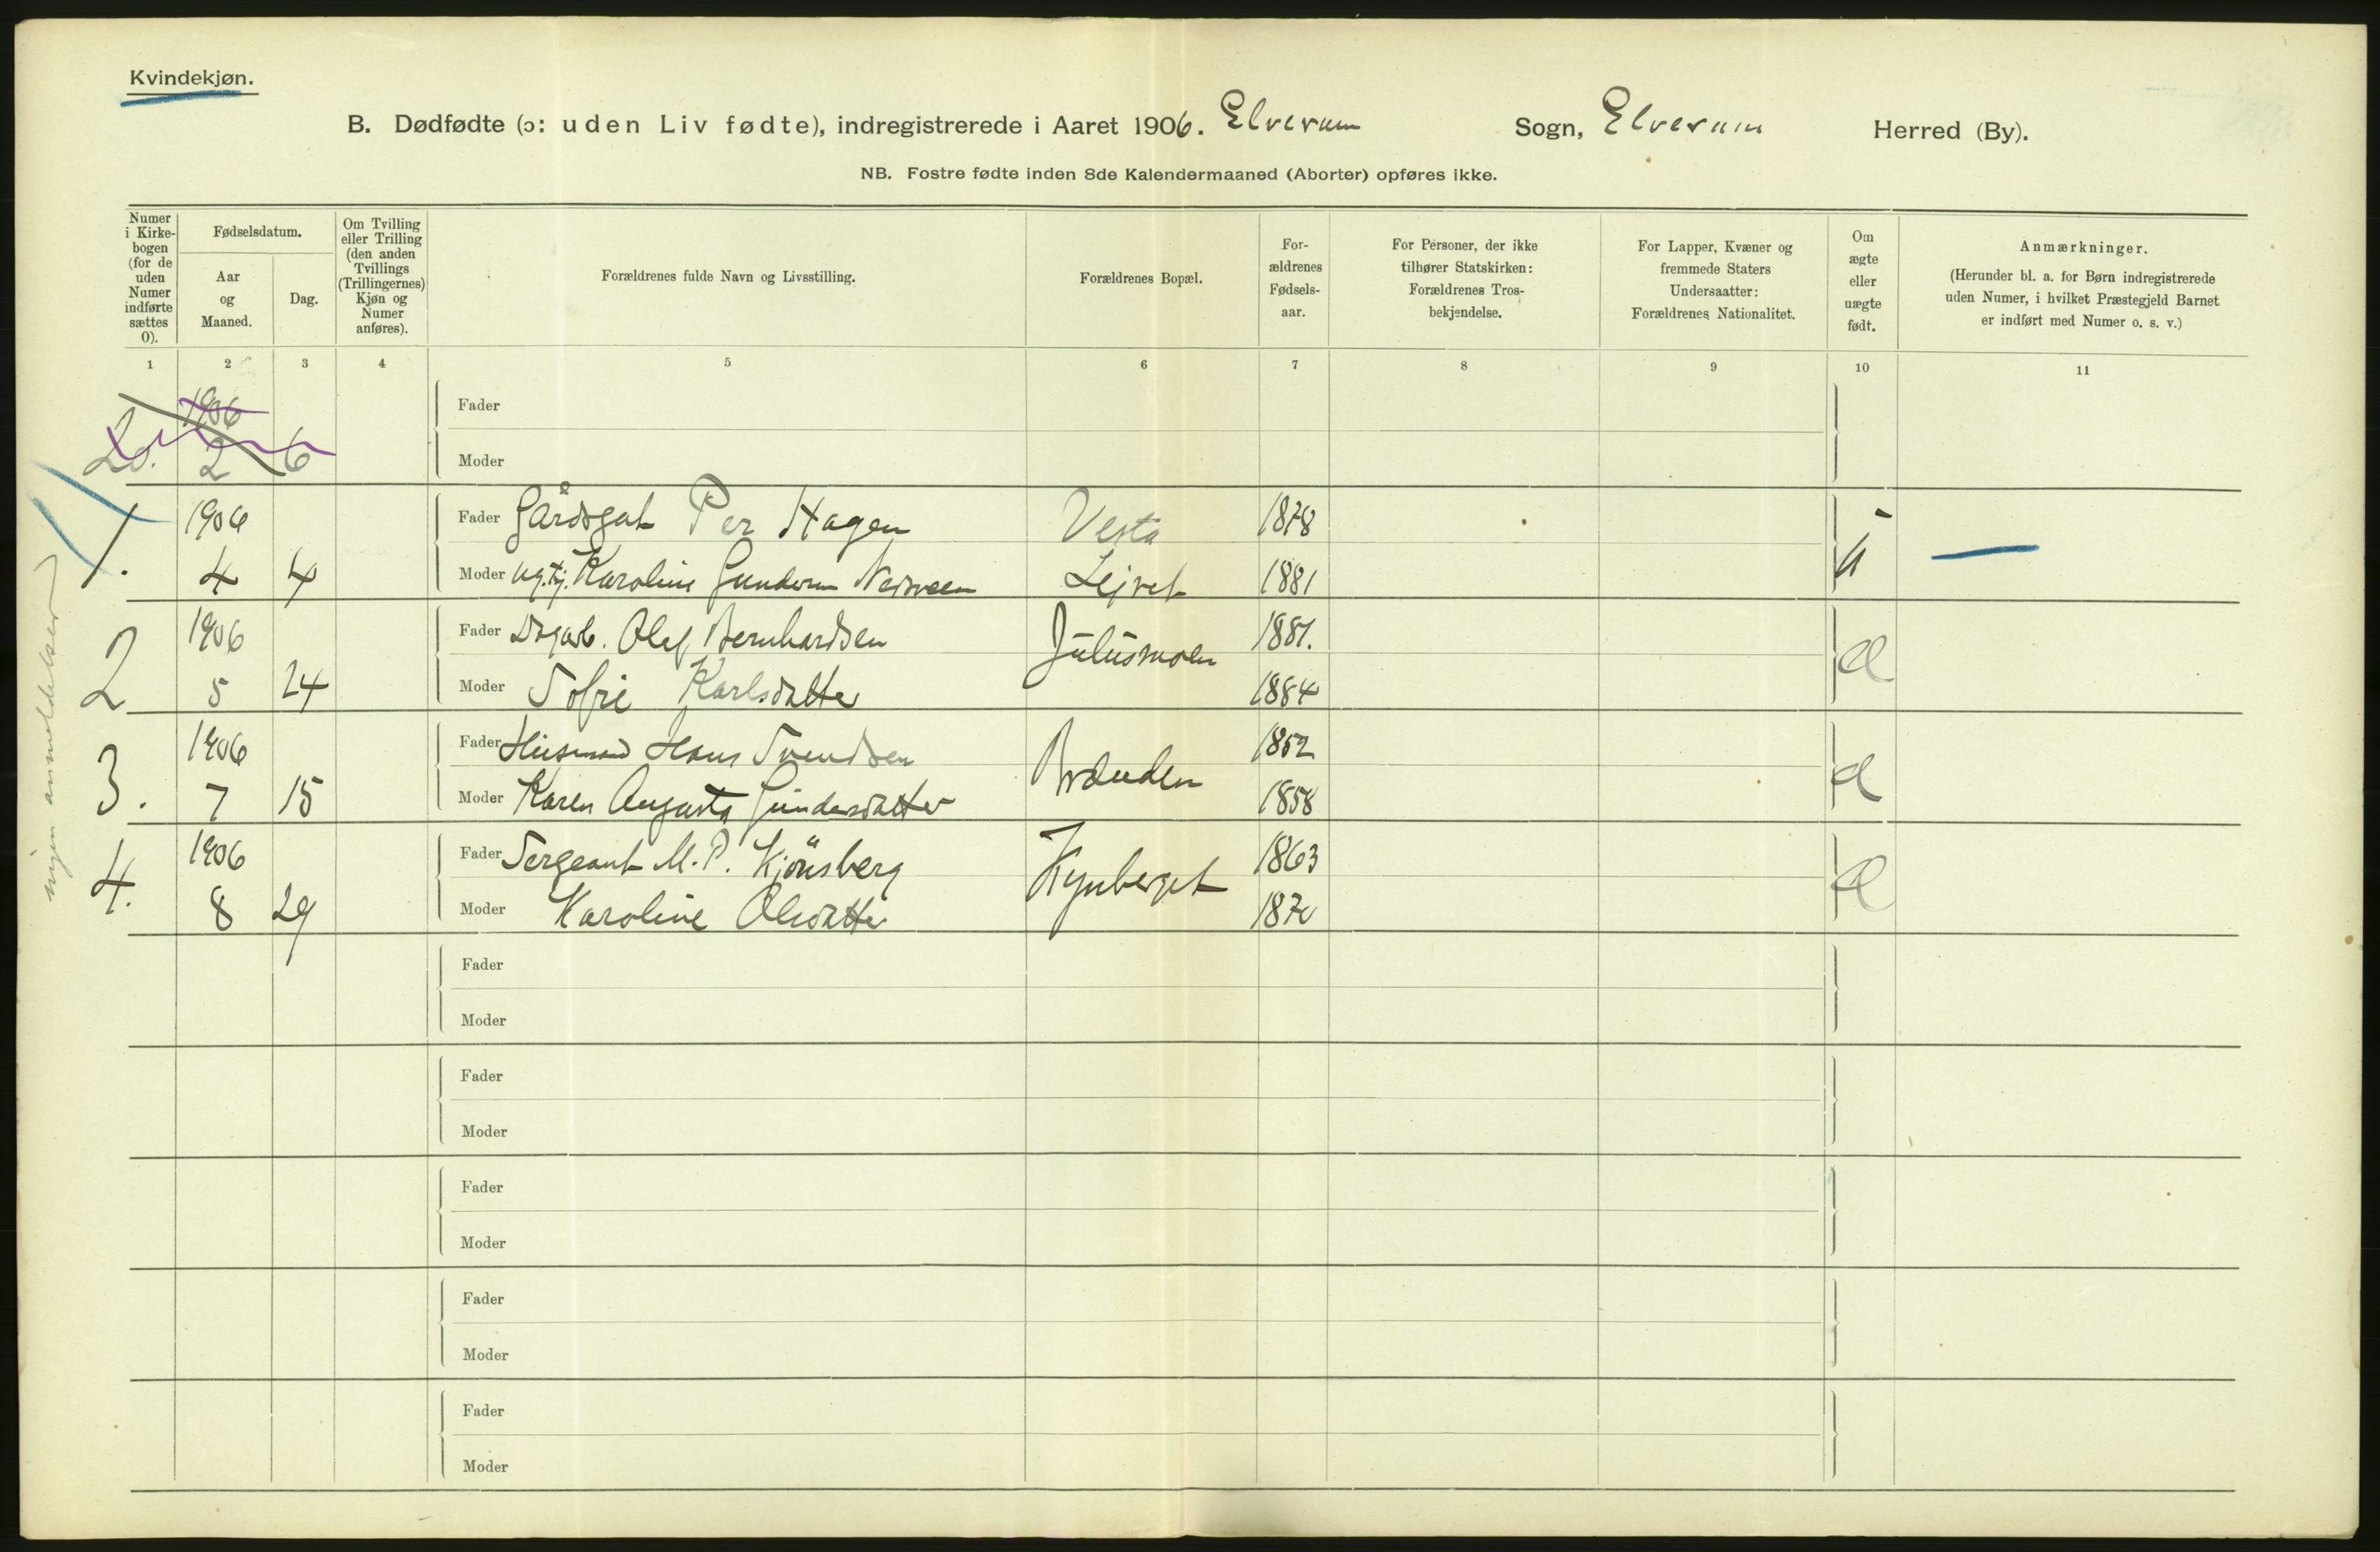 Kvindekjøn.
B. Dødfødte (ɔ: uden Liv fødte), indregistrerede i Aaret 1906. Elverum Sogn, Elverum Herred (By).
NB. Fostre fødte inden 8de Kalendermaaned (Aborter) opføres ikke.
Numer i Kirkebogen (for de uden Numer indførte sættes 0).
Fødselsdatum.
Aar og Maaned.
Dag.
Om Tvilling eller Trilling (den anden Tvillings (Trillingernes) Kjøn og Numer anføres).
Forældrenes fulde Navn og Livsstilling.
Forældrenes Bopæl.
Forældrenes Fødselsaar.
For Personer, der ikke tilhører Statskirken: Forældrenes Trosbekjendelse.
For Lapper, Kvæner og fremmede Staters Undersaatter: Forældrenes Nationalitet.
Om ægte eller uægte født.
Anmærkninger.
(Herunder bl. a. for Børn indregistrerede uden Numer, i hvilket Præstegjeld Barnet er indført med Numer o. s. v.)
1 2 3 4 5 6 7 8 9 10 11
1906 Fader
2 6 Moder
1. 1906 Fader Per Hagen Vesta 1878
4 4 Moder Karoline Lejret 1881 u
2 1906 Fader Olef Bernhardsen Julusmoen 1881.
5 24 Moder Sofie Karlsdatter 1884
3. 1906 Fader Husmand Hans Svendsen Brænden 1852
7 15 Moder Karen Augusta Gundersdatter 1858
4. 1906 Fader Sergeant M. P. Kjönsberg Kynberget 1863
8 29 Moder Karoline Olsdatter
Fader
Moder
Fader
Moder
Fader
Moder
Fader
Moder
Fader
Moder